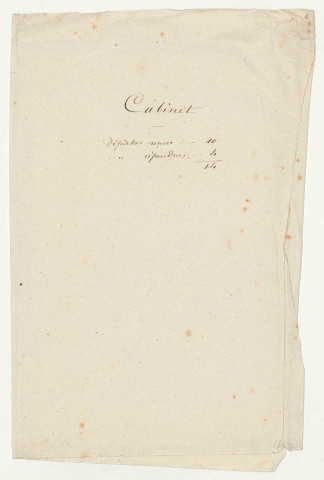 Cabinet
Dépêches reçues 10
" répandues 4
14